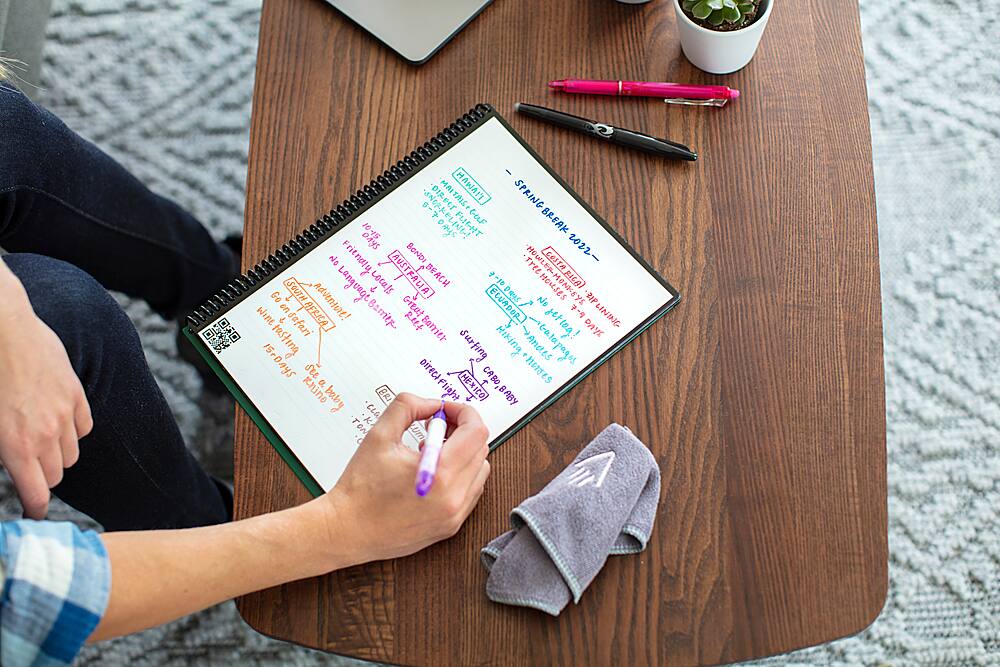 - SPRING BREAK 2022 -
HAWAI'I
MAITAIS + GOLF
DIRECT FLIGHT
SNORKELING!
DAYS
COSTA RICA
· HOWLER MONKEYS · ZIPLINING
· TREE HOUSES 7-9 DAYS
10-15
DAYS
BONDI BEACH
AUSTRALIA
Friendly Locals
No Language Barrier
Great Barrier
Reef
7-10 DAYS
ECUADOR
No jetlag!
Galapagos
Andes
Hiking + Horses
Adventure!
SOUTH AFRICA
Go on Safari
Wine tasting
15+ DAYS
See a baby
rhino
Surfing
CABO, BABY
MEXICO
Direct Flight